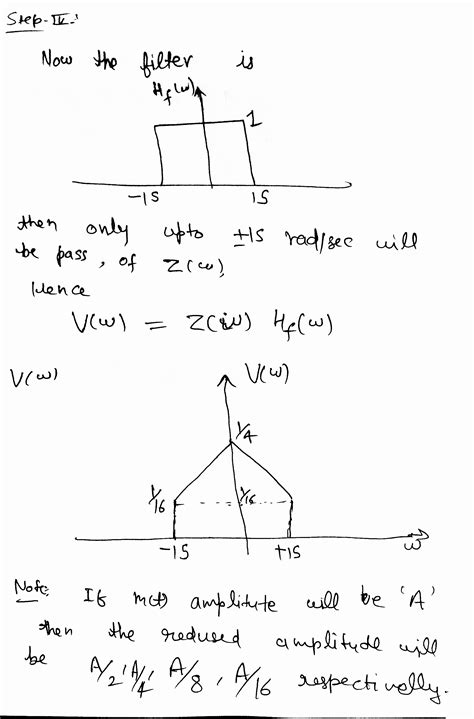 Step-IV:
Now the filter is
Hf(ω)
1
-15 15
then only upto ±15 rad/sec will
be pass, of Z(ω),
Hence
V(ω) = Z(ω) Hf(ω)
V(ω)
V(ω)
1/4
1/16 1/16
-15 +15 ω
Note: If m(t) amplitute will be 'A'
then the redused amplitude will
be A/2, A/4, A/8, A/16 respectivally.